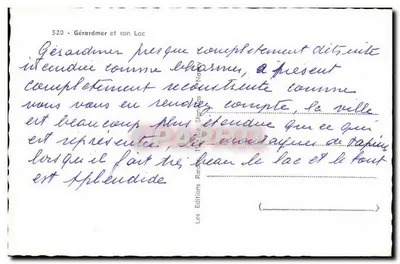 520 - Gérardmer et son Lac
Gérardmer presque completement détruite
incendiée comme Charmes, a présent
completement reconstruite comme
vous vous en rendez compte, la ville
est beaucoup plus étendue que ce qui
est représentée, les montagnes de sapins
lorsqu'il fait très beau le lac et le tout
est splendide
Les Editions